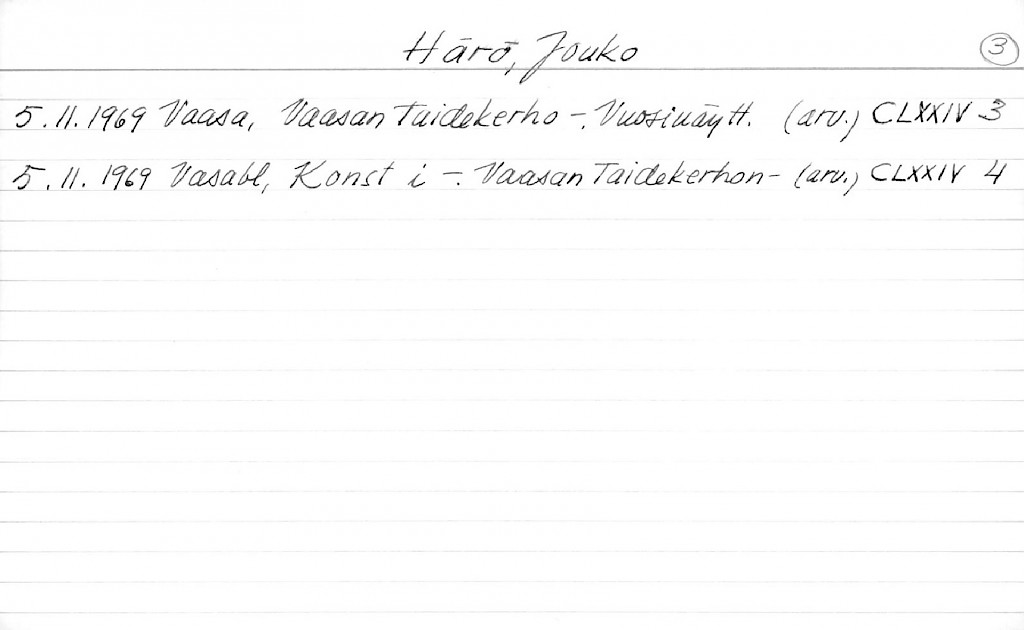 Härö, Jouko 3
5.11.1969 Vaasa, Vaasan Taidekerho -. Vuosinäytt. (arv.) CLXXIV 3
5.11.1969 Vasabl, Konst i -. Vaasan Taidekerhon - (arv.) CLXXIV 4